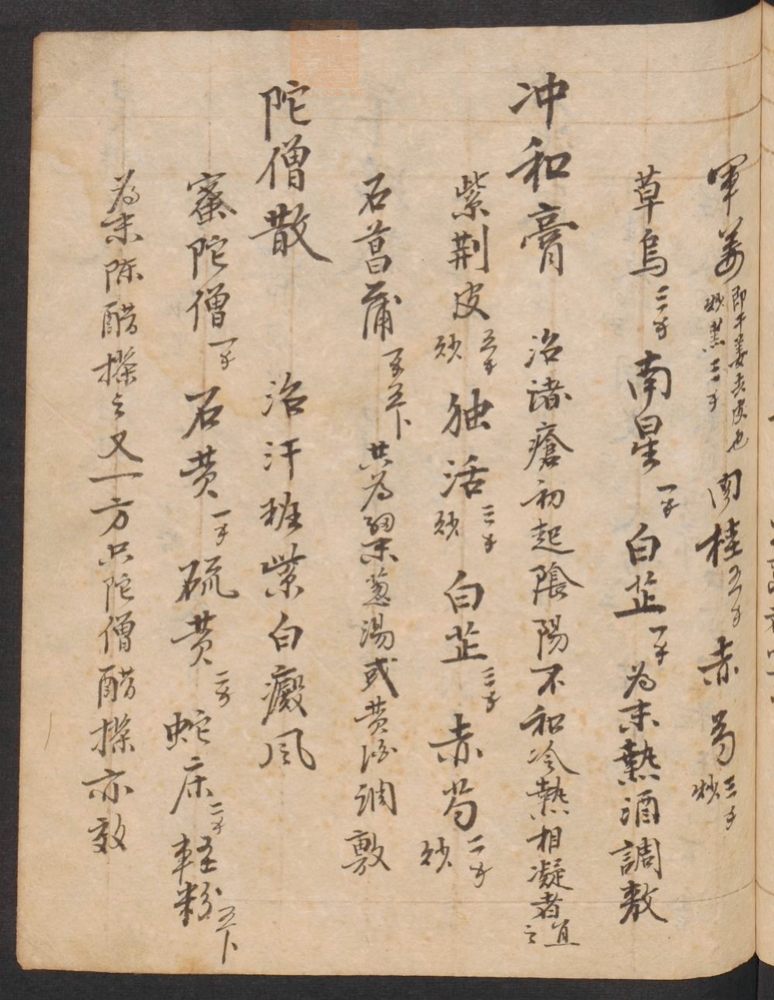 軍姜即干姜去皮也炒黑三才 肉桂五才 赤芍三才炒
草烏三才 南星一才 白芷一才 為末熱酒調敷
冲和膏 治諸瘡初起陰陽不和冷熱相凝者宜之
紫荆皮五才炒 独活三才炒 白芷三才 赤芍二才炒
石菖蒲 共為細末葱湯或黄酒調敷
陀僧散 治汗班紫白癜风
宻陀僧一才 石黄一才 硫黄二才 蛇床二才 軽粉五卜
為末陈醋搽之又一方只陀僧醋搽亦效